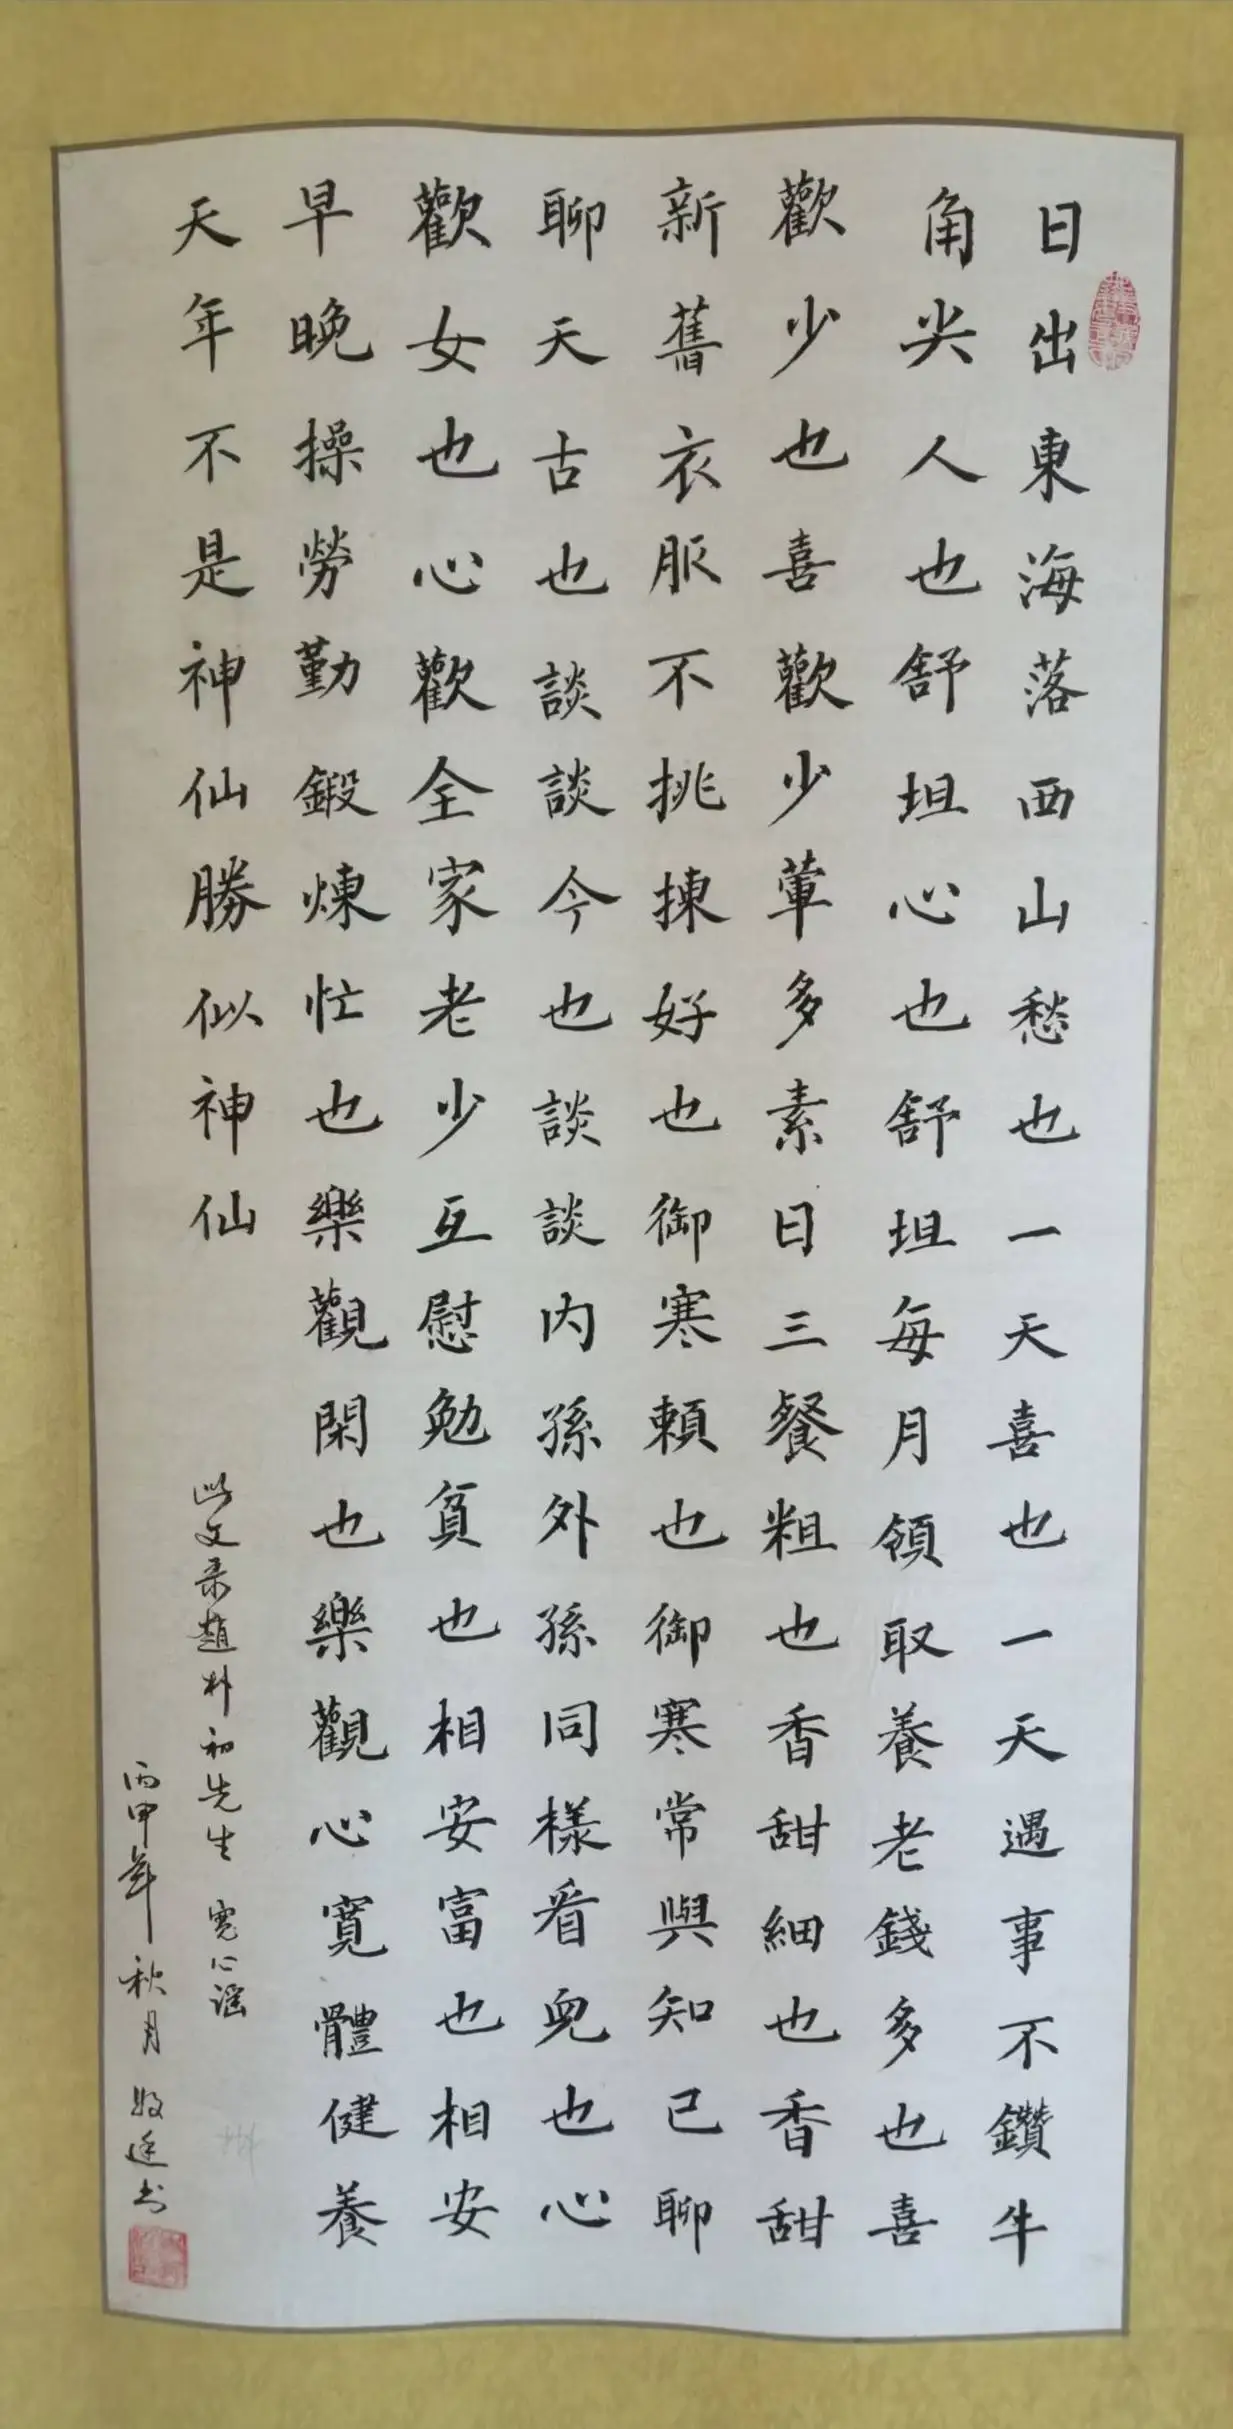 日出東海落西山愁也一天喜也一天遇事不鑽牛
角尖人也舒坦心也舒坦每月領取養老錢多也喜
歡少也喜歡少葷多素日三餐粗也香甜細也香甜
新舊衣服不挑揀好也御寒賴也御寒常與知己聊
聊天古也談談今也談談内孫外孫同樣看兒也心
歡女也心歡全家老少互慰勉貧也相安富也相安
早晚操勞勤鍛煉忙也樂觀閑也樂觀心寬體健養
天年不是神仙勝似神仙
此文录趙朴初先生 宽心謡
丙申年秋月